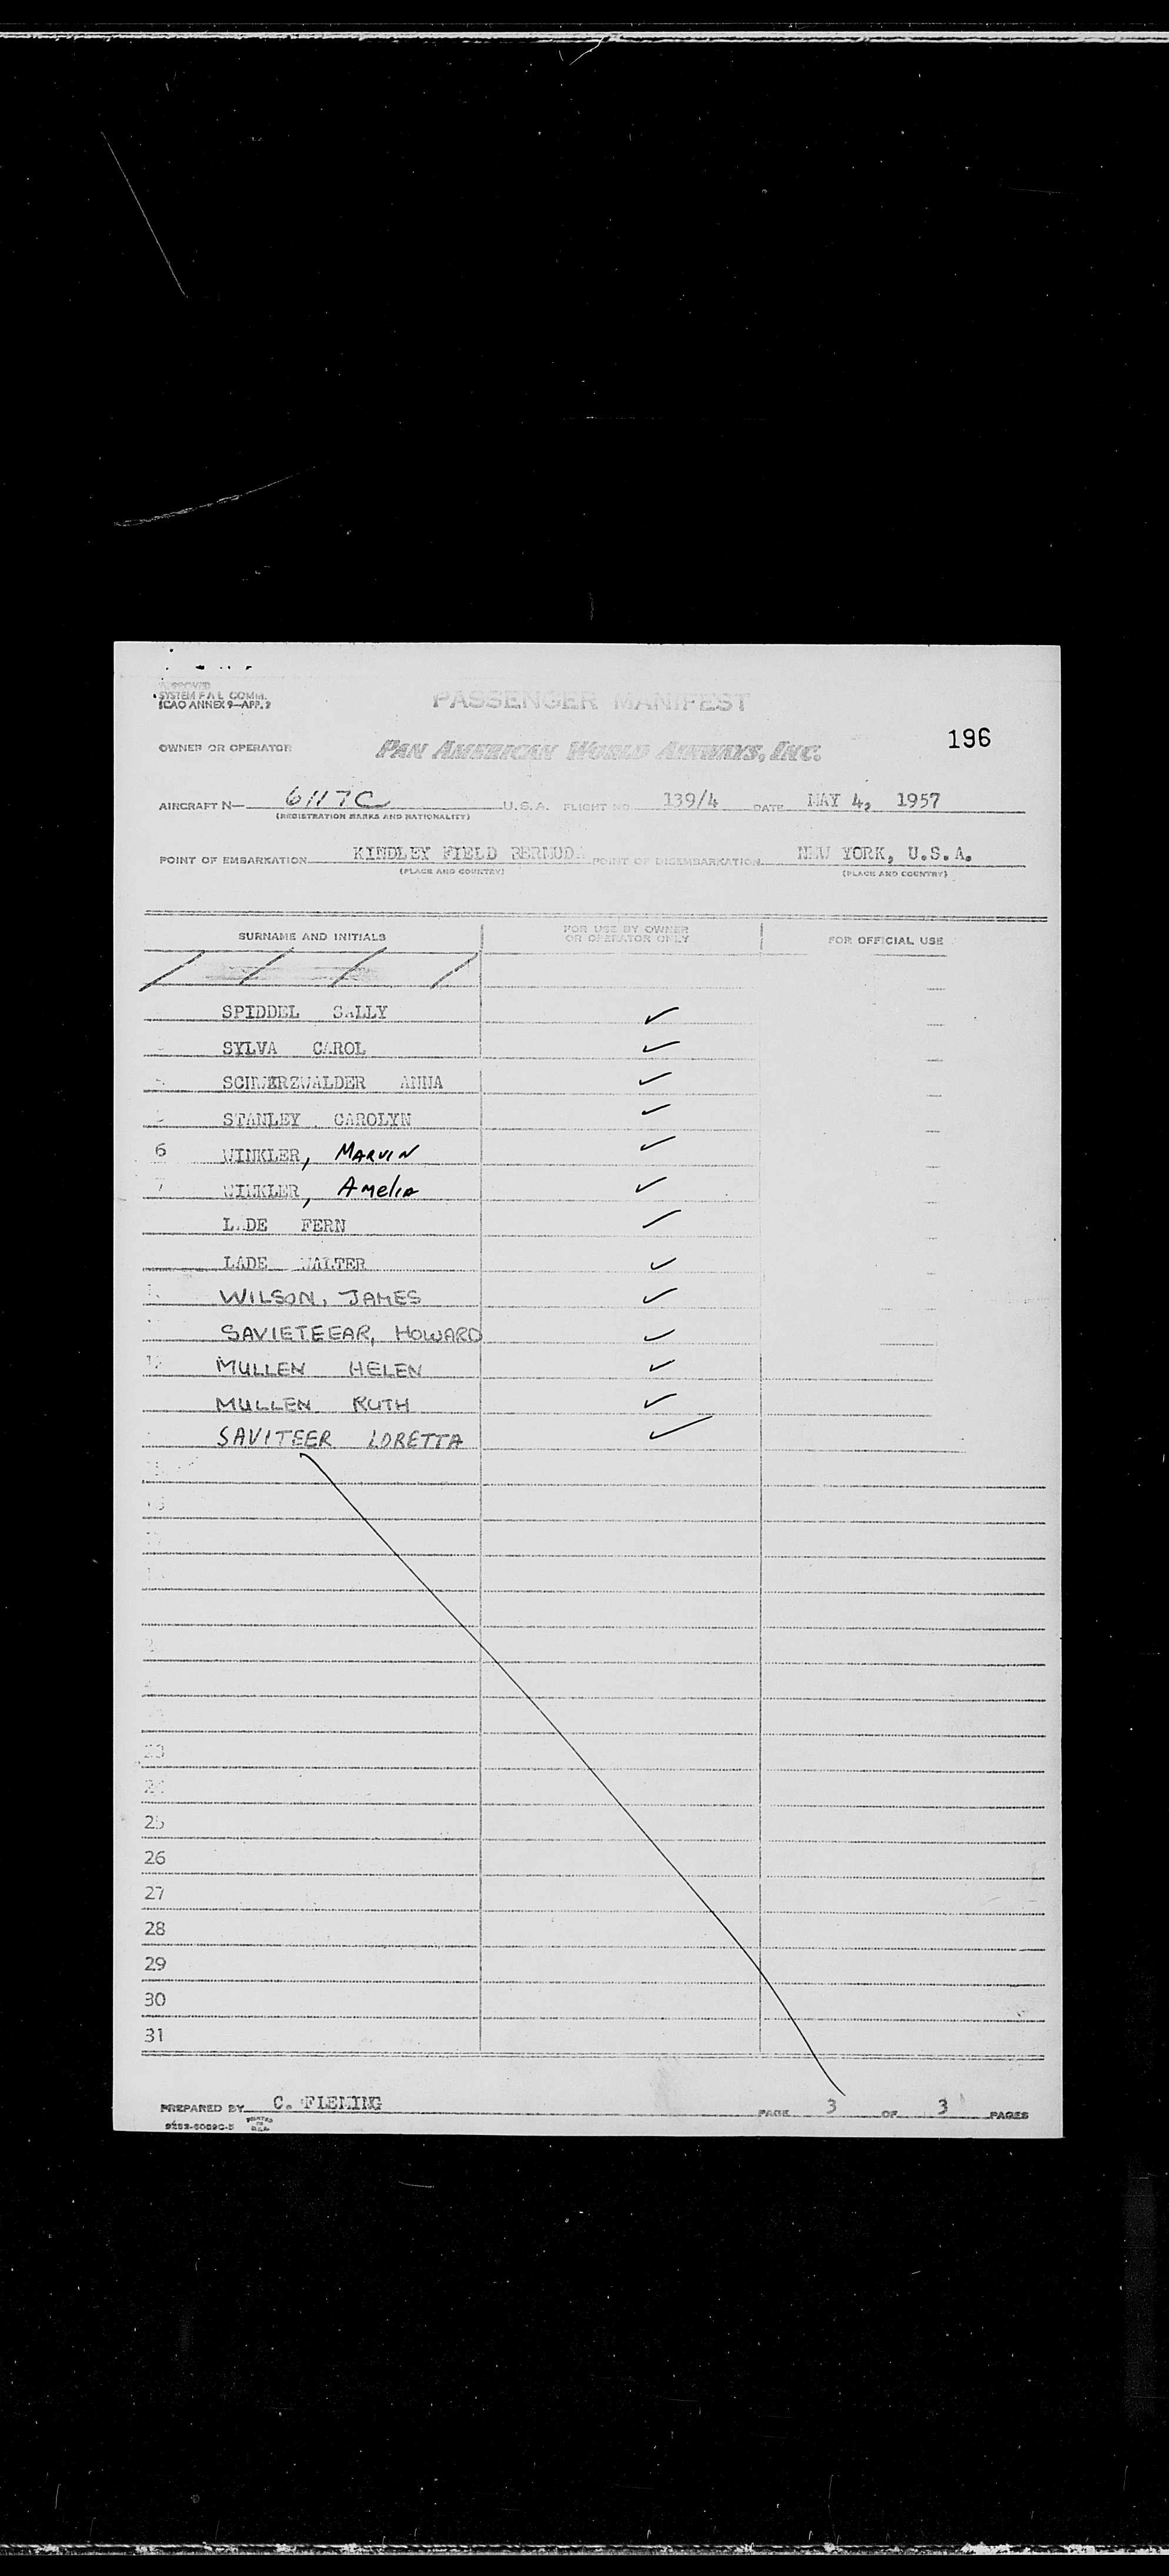 APPROVED
SYSTEM F A L COMM.
ICAO ANNEX 9—APP. 2
PASSENGER MANIFEST
196
OWNER OR OPERATOR PAN AMERICAN WORLD AIRWAYS, INC.
AIRCRAFT N— 6117C U.S.A. FLIGHT NO 139/4 DATE MAY 4, 1957
(REGISTRATION MARKS AND NATIONALITY)
POINT OF EMBARKATION KINDLEY FIELD BERMUDA POINT OF DISEMBARKATION NEW YORK, U.S.A.
(PLACE AND COUNTRY) (PLACE AND COUNTRY)
SURNAME AND INITIALS FOR USE BY OWNER OR OPERATOR ONLY FOR OFFICIAL USE
SPIDDEL SALLY
SYLVA CAROL
SCHWERZWALDER ANNA
STANLEY CAROLYN
6 WINKLER, MARVIN
7 WINKLER, Amelia
LADE FERN
LADE WALTER
WILSON, JAMES
SAVIETEEAR, HOWARD
12 MULLEN HELEN
MULLEN RUTH
SAVITEER LORETTA
23
24
25
26
27
28
29
30
31
PREPARED BY C. FLEMING PAGE 3 OF 3 PAGES
PRINTED IN U.S.A.